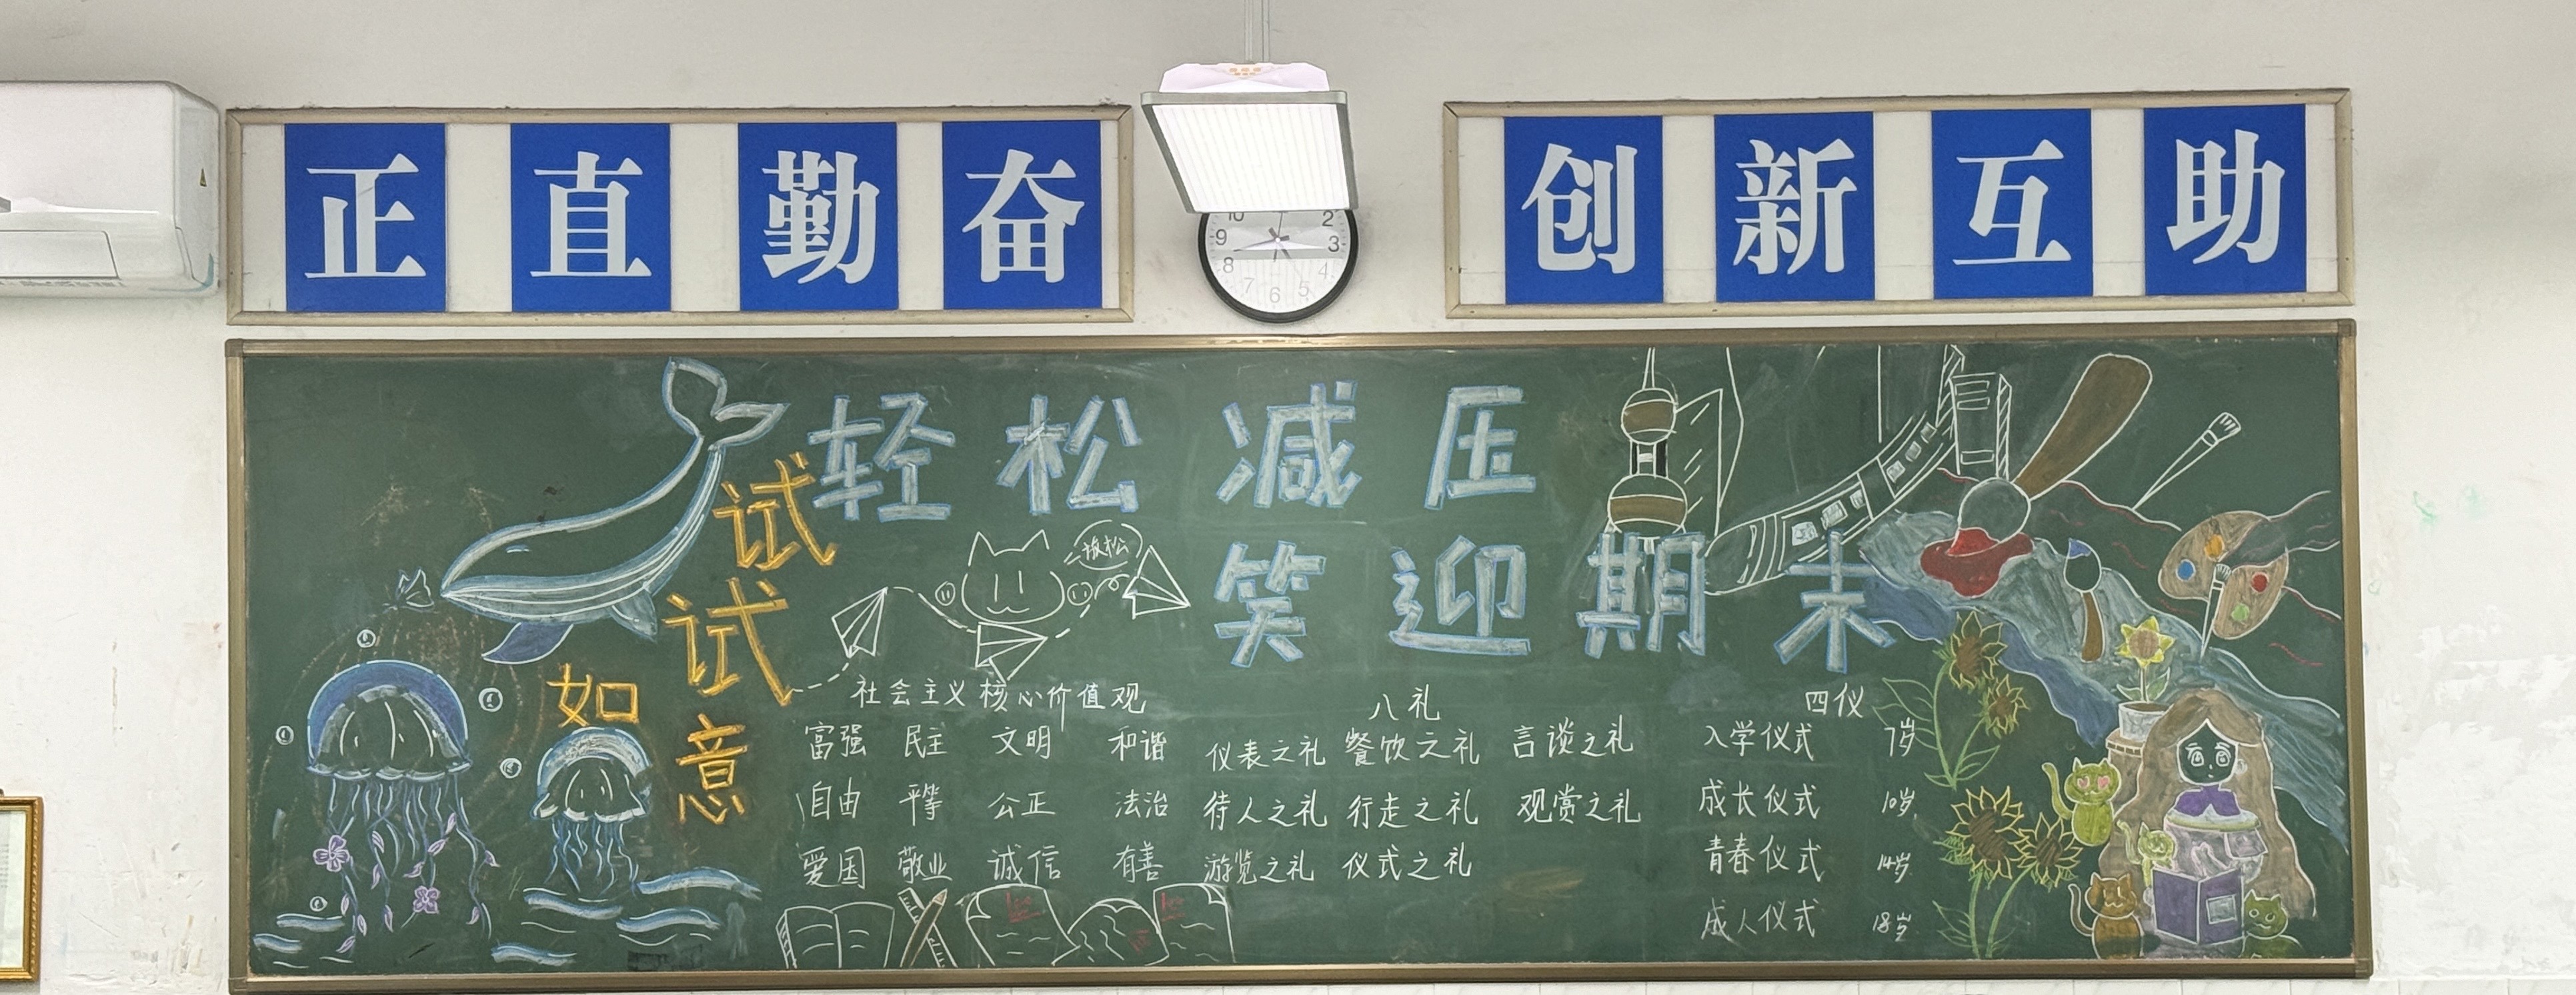 正直勤奋
创新互助
10 2
9 3
8 4
7 6 5
轻松减压
笑迎期末
试试如意
放松
社会主义核心价值观
富强 民主 文明 和谐
自由 平等 公正 法治
爱国 敬业 诚信 有善
八礼
仪表之礼 餐饮之礼 言谈之礼
待人之礼 行走之礼 观赏之礼
游览之礼 仪式之礼
四仪
入学仪式 7岁
成长仪式 10岁
青春仪式 14岁
成人仪式 18岁